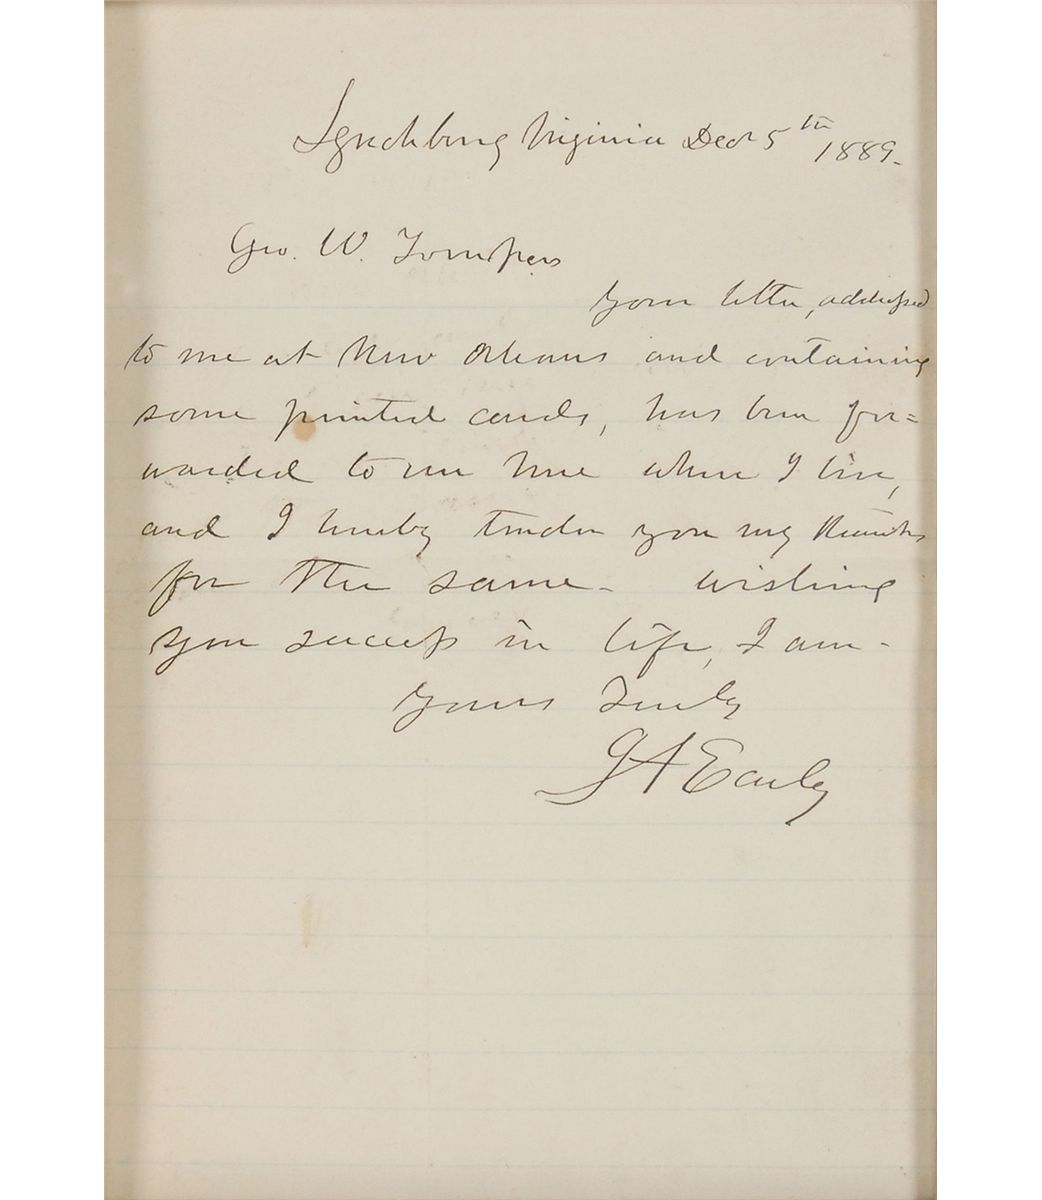 Lynchburg Virginia Decr 5th 1889.
Geo. W.
Your letter, addressed
to me at New Orleans and containing
some printed cards, has been for=
warded to me here where I live,
and I hereby tender you my thanks
for the same - wishing
you success in life, I am -
Yours Truly
J A Early